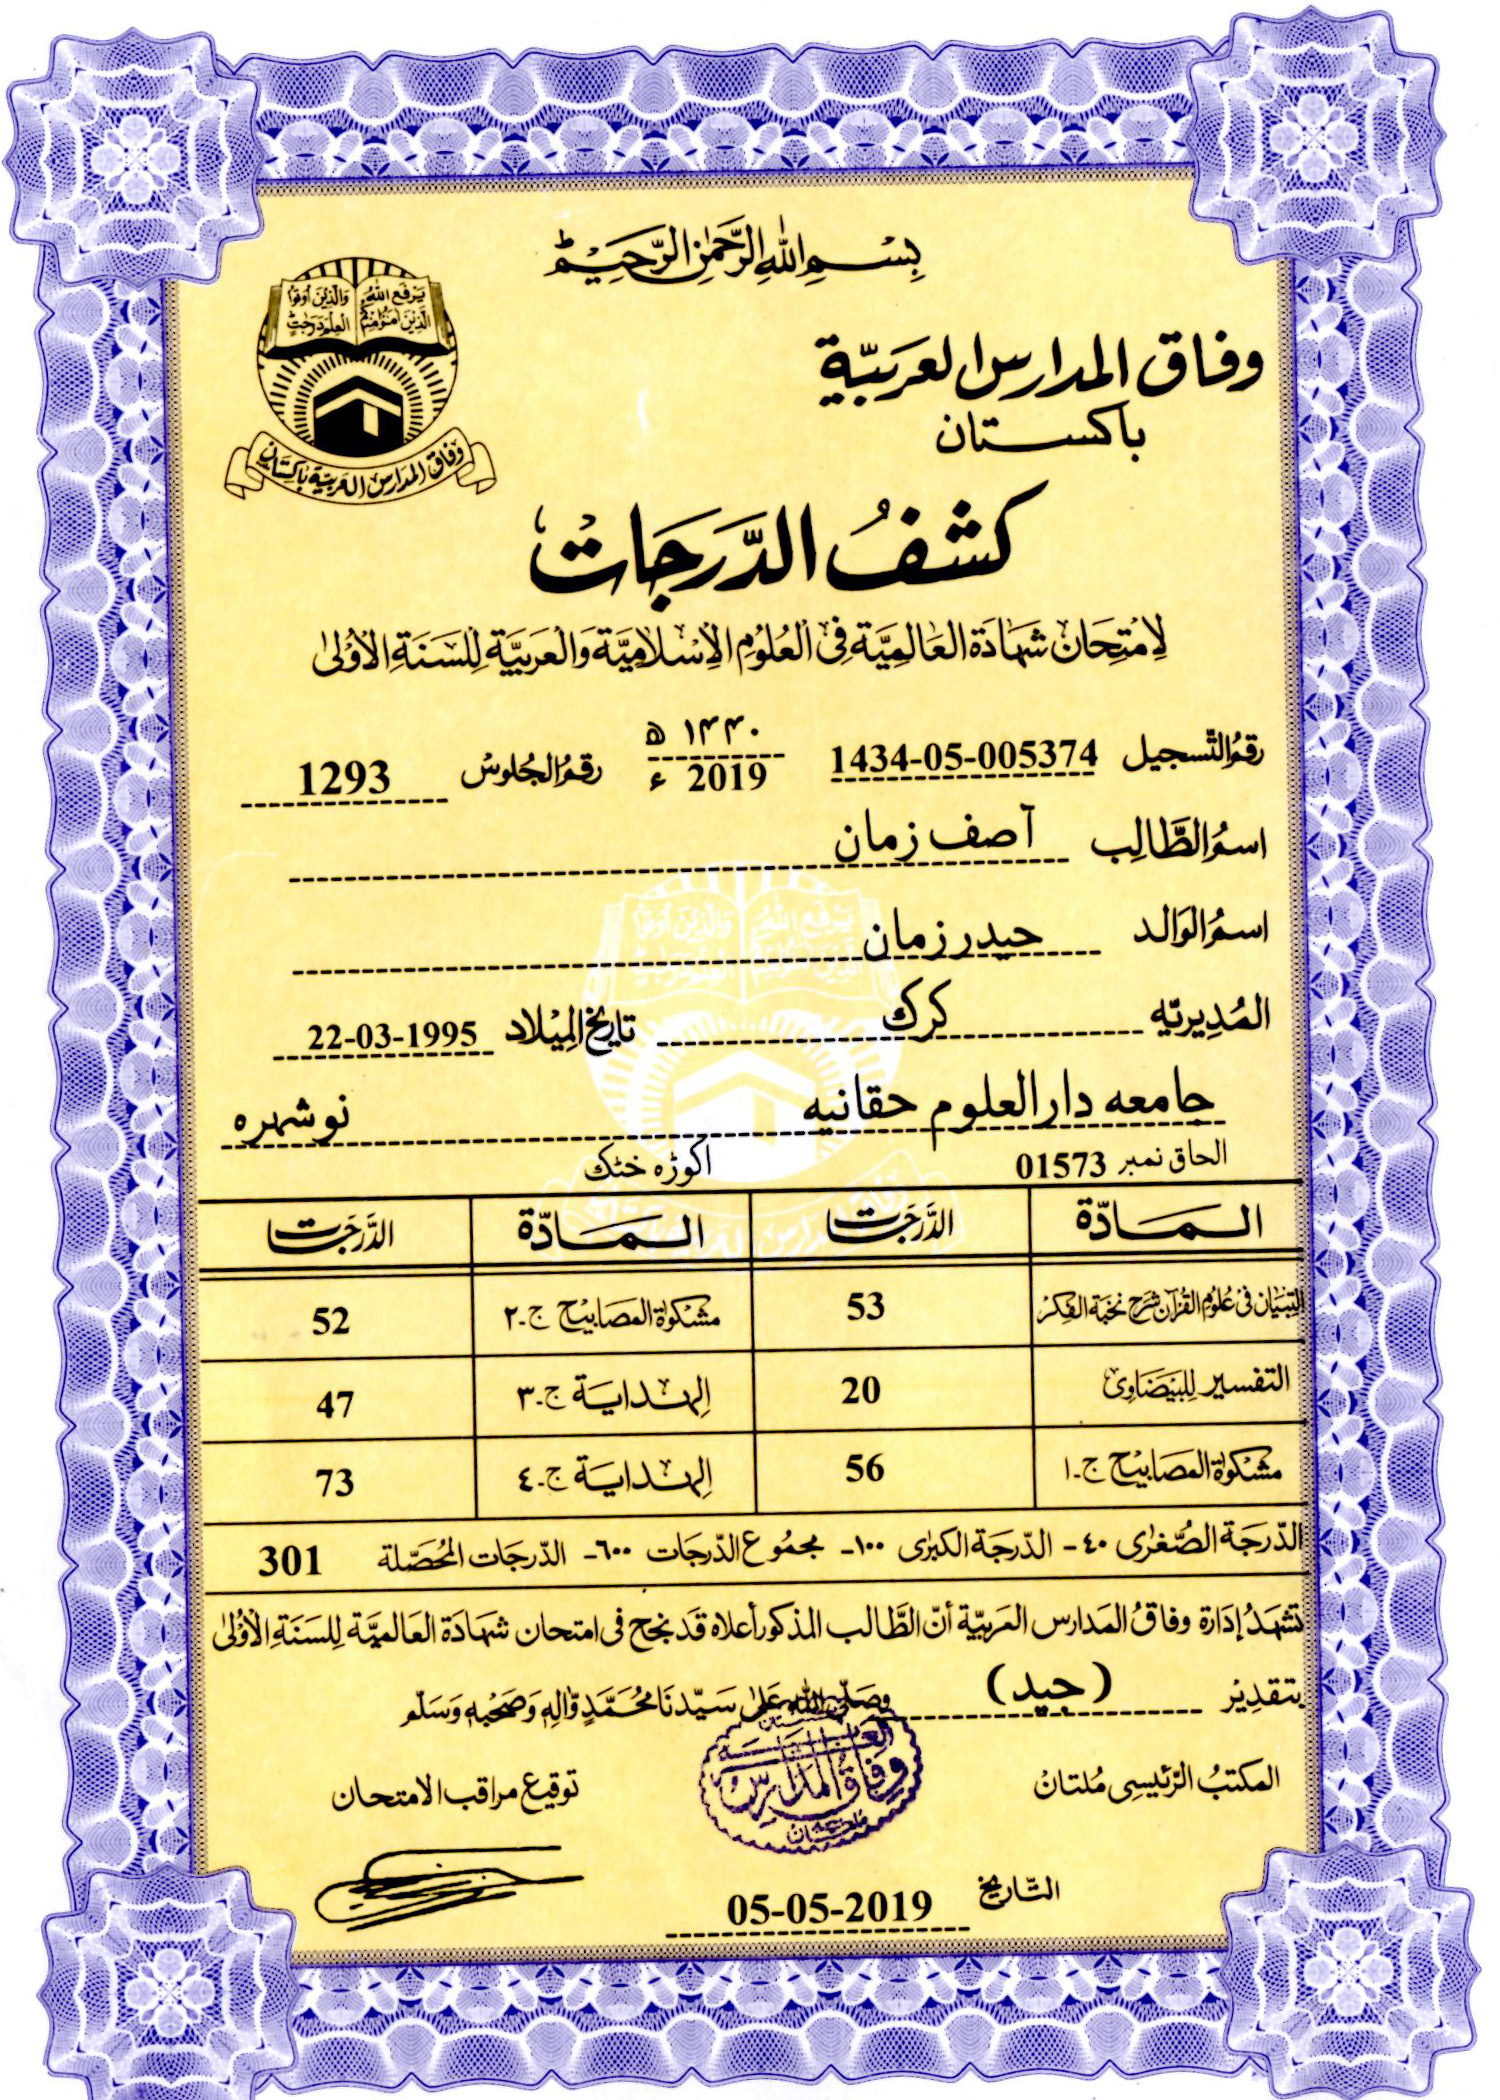 بِسْمِ اللهِ الرَّحْمٰنِ الرَّحِيْمِ
يَرْفَعِ اللهُ الَّذِيْنَ اٰمَنُوْا مِنْكُمْ
وَالَّذِيْنَ اُوْتُوا الْعِلْمَ دَرَجٰتٍ
وفاق المدارس العربية باكستان
وفاق المدارس العربيّة
باكستان
كشفُ الدَّرَجَاتْ
لِامْتِحَانْ شَهَادَة العَالمِيَّة فِي الْعُلُوْمِ الْاِسْلَامِيَّة وَالْعَرَبِيَّة لِلسَنَةِ الْاُوْلىٰ
رقمُ التّسجيل 1434-05-005374 ۱۴۴۰ ھ 2019 ء رقمُ الجُلوسْ 1293
اسمُ الطَّالِب آصف زمان
اسمُ الوَالد حیدر زمان
المُدِيريّه کرک تاريخُ المِيْلاد 22-03-1995
جامعه دارالعلوم حقانیه نوشهره
الحاق نمبر 01573 اکوڑہ خٹک
المَادّة الدَّرَجَت المَادّة الدَّرَجَت
التِبيَان فى عُلُومِ القُرآن شرح نخبَة الفكر 53 مشكوة المصَابيح ج-۲ 52
التفسير لِلبَيضَاوى 20 الهداية ج-۳ 47
مشكوة المصَابيح ج-۱ 56 الهداية ج-٤ 73
الدّرَجَة الصُّغرٰى ٤٠- الدّرجَة الكبرٰى ١٠٠- مجمُوع الدّرجَات ٦٠٠- الدّرجَات المُحصّلة 301
تشهَدُ إدَارة وفاقُ المَدارس العَربيّة أنّ الطَّالب المذكور أعلاه قَد نجح فى امتحان شهَادَة العَالميَّة لِلسَنَةِ الْاُوْلىٰ
بتقدِيْر (جید) وصَلّى الله عَلىٰ سَيّدنَا مُحَمَّدٍ وَّاٰلِهٖ وَصَحْبِهٖ وَسَلّم
المكتبُ الرّئيسِى مُلتانْ توقيع مراقب الامتحان
وفاق المدارس العربية
التّاريخ 05-05-2019